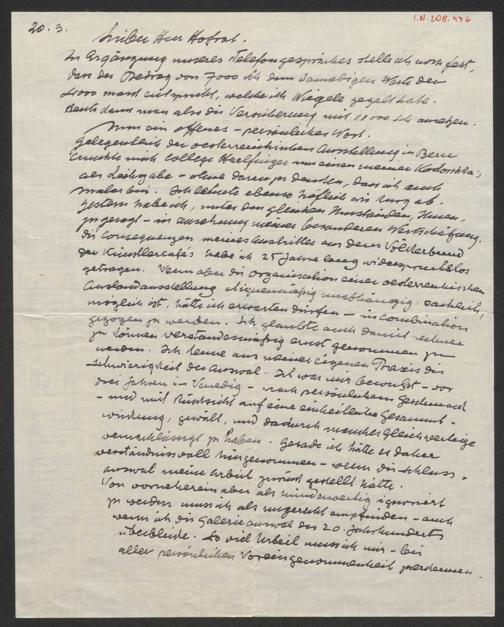 I.N. 208.476
20. 3.
Lieber Herr Hofrat.
In Ergänzung unseres Telefongespräches stelle ich noch fest,
dass der Betrag von 7000 Sch dem damaligen Werte der
4000 Mark entspricht, welche ich Wiegele gezalt habe.
Heute kann man also die Versicherung mit 10000 Sch ansetzen.
Nun ein offenes - persönliches Wort.
Gelegentlich der oesterreichischen Ausstellung in Bern
ersuchte mich College um einen meiner Kokoschka's
als Leihgabe - ohne daran zu denken, dass ich auch
Maler bin. Ich lehnte ebenso höflich wie kurz ab.
Gestern habe ich, unter den gleichen Umständen, Ihnen,
zugesagt - in Ansehung meiner besonderen Wertschätzung.
Die Consequenzen meines Austrittes aus dem Völkerbund
der Künstlercafés habe ich 25 Jahre lang widerspruchslos
getragen. Wenn aber die Organisation einer oesterreichischen
Auslandausstellung cliquenmässig unabhängig, sachlich,
möglich ist, hätte ich erwarten dürfen - in Combination
gezogen zu werden. Ich glaubte auch damit rechnen
zu können verstandesmässig ernst genommen zu
werden. Ich kenne aus meiner eigenen Praxis die
Schwierigkeit der Auswal. Ich war mir bewusst - vor
drei Jahren in Venedig - nach persönlichem Geschmack
- und mit Rücksicht auf eine einheitliche Gesamt-
wirkung, gewält, und dadurch manches Gleichwertige
vernachlässigt zu haben. Gerade ich hätte es daher
verständnisvoll hingenommen - wenn die Schluss-
auswal meine Arbeit zurück gestellt hätte.
Von vorneherein aber als minderwertig ignoriert
zu werden muss ich als ungerecht empfinden - auch
wenn ich die Galerieauswal des 20. Jahrhunderts
überblicke. So viel Urteil muss ich mir - bei
aller persönlichen Voreingenommenheit